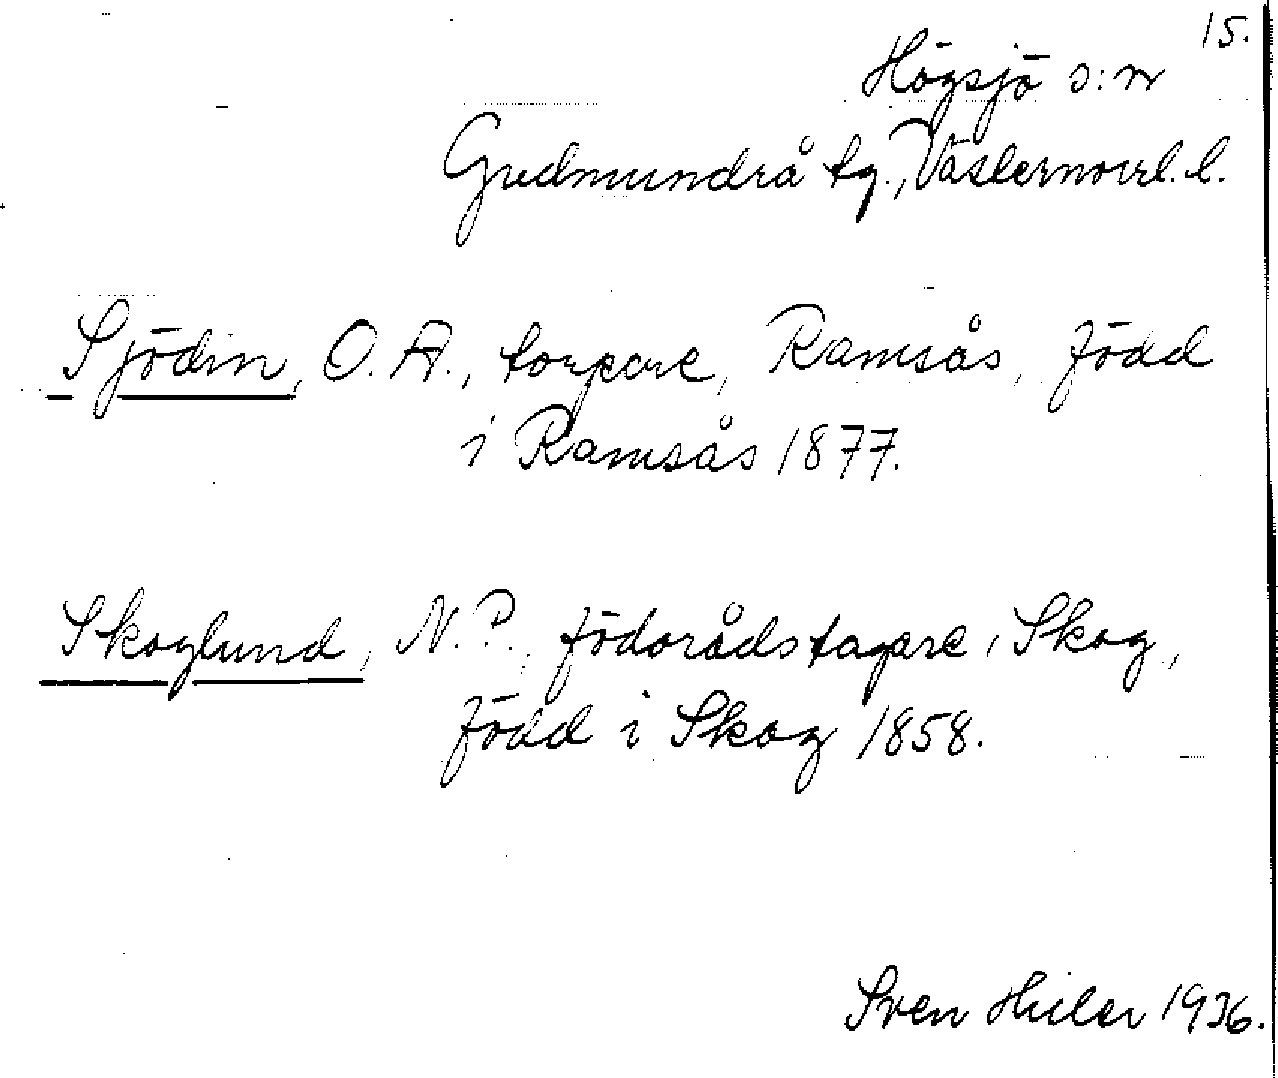 15.
Högsjö s:n
Gudmundrå tg., Västernorrl. l.
Sjödin, O. A., torpare, Ramsås, född
i Ramsås 1877.
Skoglund, N. P., födorådstagare, Skog,
född i Skog 1858.
Sven 1936.